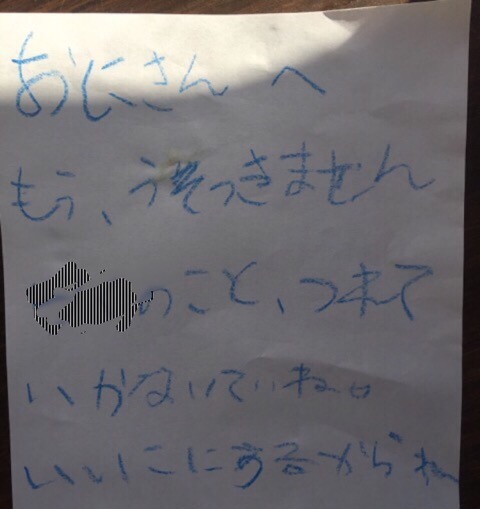 おにさん へ
もう、うそつきません
のこと、つれて
いかないでね。
いいこにするからね